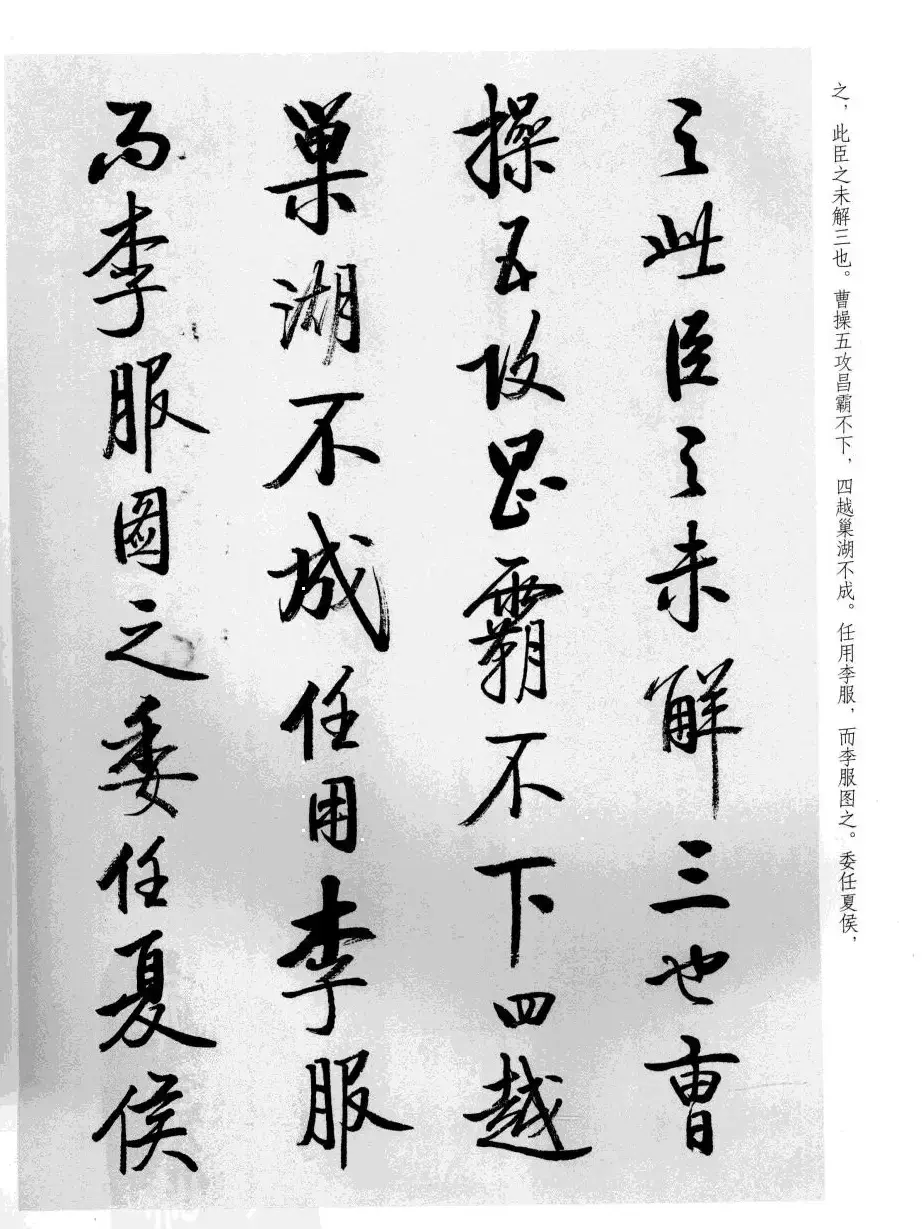 之，此臣之未解三也。曹操五攻昌霸不下，四越巢湖不成。任用李服，而李服图之。委任夏侯，
之此臣之未解三也曹
操五攻昌霸不下四越
巢湖不成任用李服
而李服圖之委任夏侯